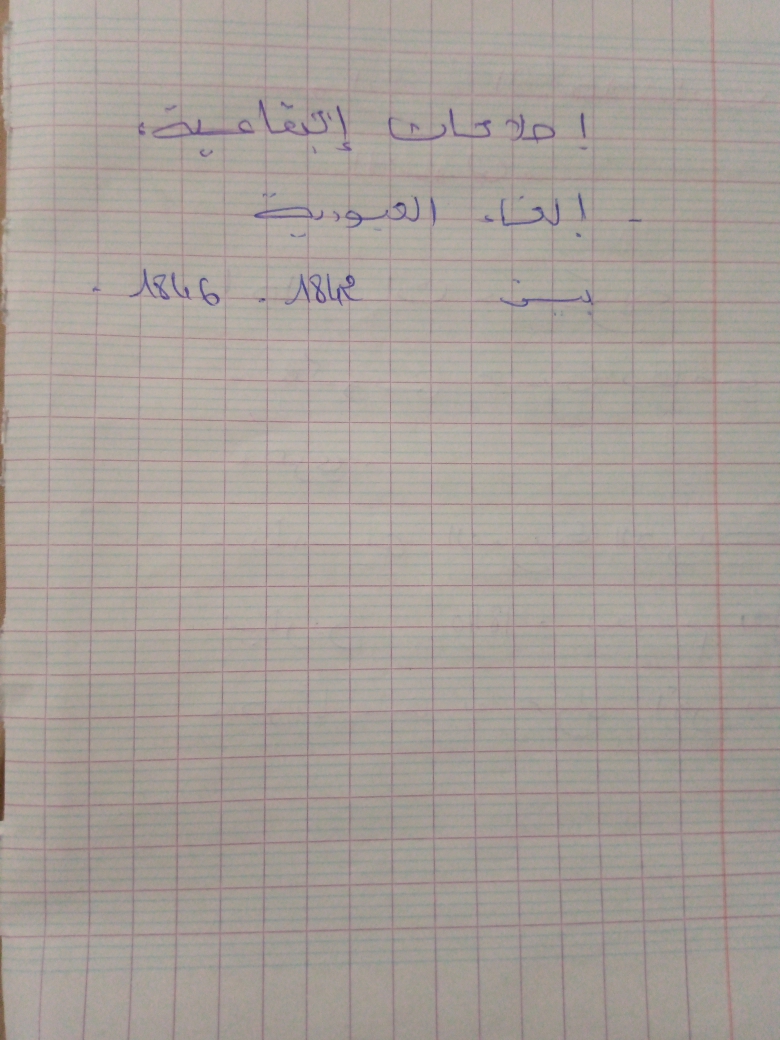 إصلاحات إجتماعية:
- إلغاء العبودية
بين 1842 . 1846 .